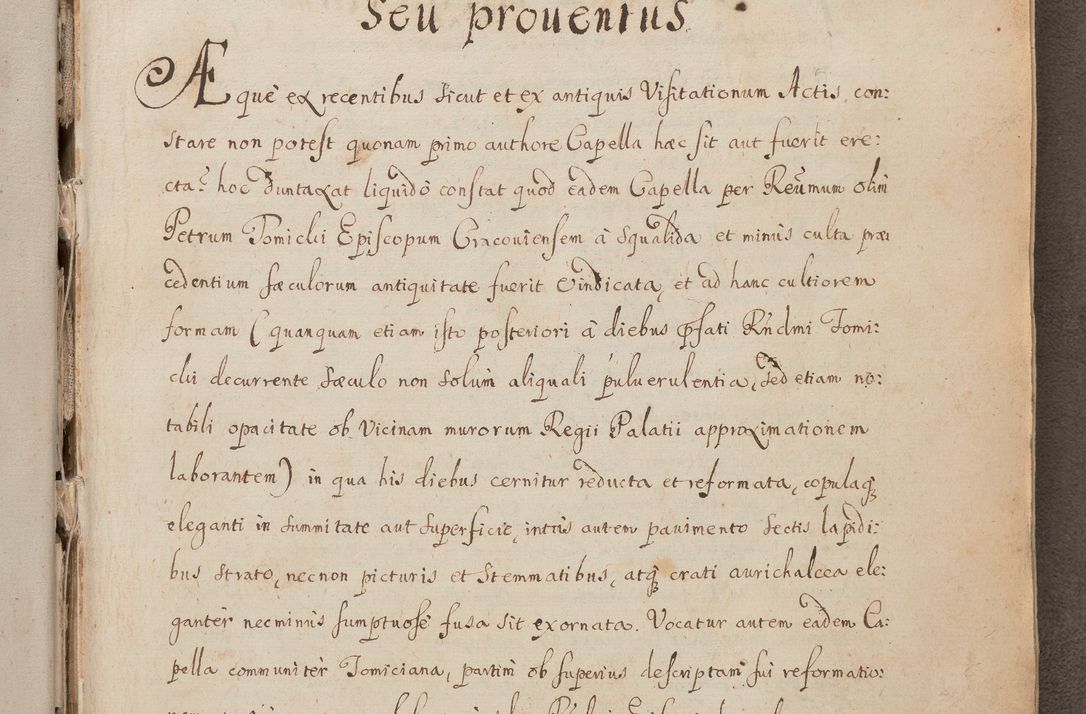 Seu prouentus
Æque ex recentibus sicut et ex antiquis Visitationum Actis con:
stare non potest quonam primo authore Capella hæc sit aut fuerit ere:
cta: hoc duntaxat liquidò constat quod eadem Capella per Reũmum olim
Petrum Tomicki Episcopum Cracouiensem à squalida et minùs culta præ
cedentium sæculorum antiquitate fuerit Vindicata, et ad hanc cultiorem
formam (quanquam etiam isto posteriori à diebus pfati Rñdmi Tomi:
cki decurrente sæculo non solùm aliquali puluerulentia, sed etiam no:
tabili opacitate ob Vicinam murorum Regii Palatii approximationem
laborantem) in qua his diebus cernitur reducta et reformata, copulaq;
eleganti in summitate aut superficie, intùs autem pauimento sectis lapidi:
bus strato, necnon picturis et stemmatibus, atq; crati aurichalcea ele:
gantèr necminùs sumptuosè fusa sit exornata. Vocatur autem eadem Ca:
pella communitèr Tomiciana, partim ob superius descriptam sui reformatio: